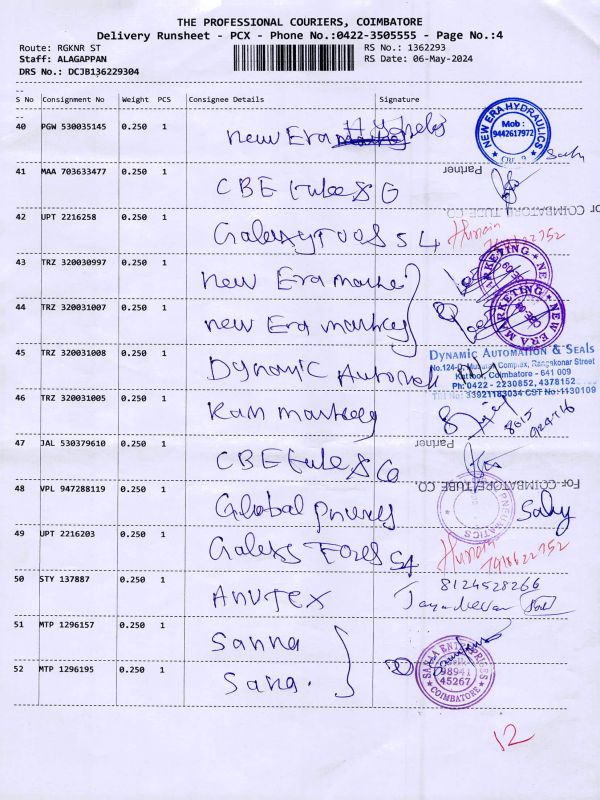 THE PROFESSIONAL COURIERS, COIMBATORE
Delivery Runsheet - PCX - Phone No.:0422-3505555 - Page No.:4
Route: RGKNR ST RS No.: 1362293
Staff: ALAGAPPAN RS Date: 06-May-2024
DRS No.: DCJB136229304
S No Consignment No Weight PCS Consignee Details Signature
40 PGW 530035145 0.250 1 New Era
NEW ERA HYDRAULICS
Mob :
9442617972
CBE. 9
41 MAA 703633477 0.250 1 CBE tubes
Partner
For COIMBATORE TUBE CO.
42 UPT 2216258 0.250 1 Galaxy Tools S4 Hussain
43 TRZ 320030997 0.250 1 New Era
44 TRZ 320031007 0.250 1 new Era
NEW ERA MARKETING
45 TRZ 320031008 0.250 1 Dynamic
DYNAMIC AUTOMATION & SEALS
Kattoor, Coimbatore - 641 009
Ph: 0422 - 2230852, 4378152
33921183034 CST No: 1130109
46 TRZ 320031005 0.250 1 Ram
47 JAL 530379610 0.250 1 CBE tubes Co
Partner
For COIMBATORE TUBE CO.
48 VPL 947288119 0.250 1 Global
PNEUMATICS
49 UPT 2216203 0.250 1 S4 Hussain
50 STY 137887 0.250 1 ANUTEX 8124528266
51 MTP 1296157 0.250 1 Sanna
52 MTP 1296195 0.250 1 Sana.
ENTERPRISES
98941
45267
COIMBATORE
12